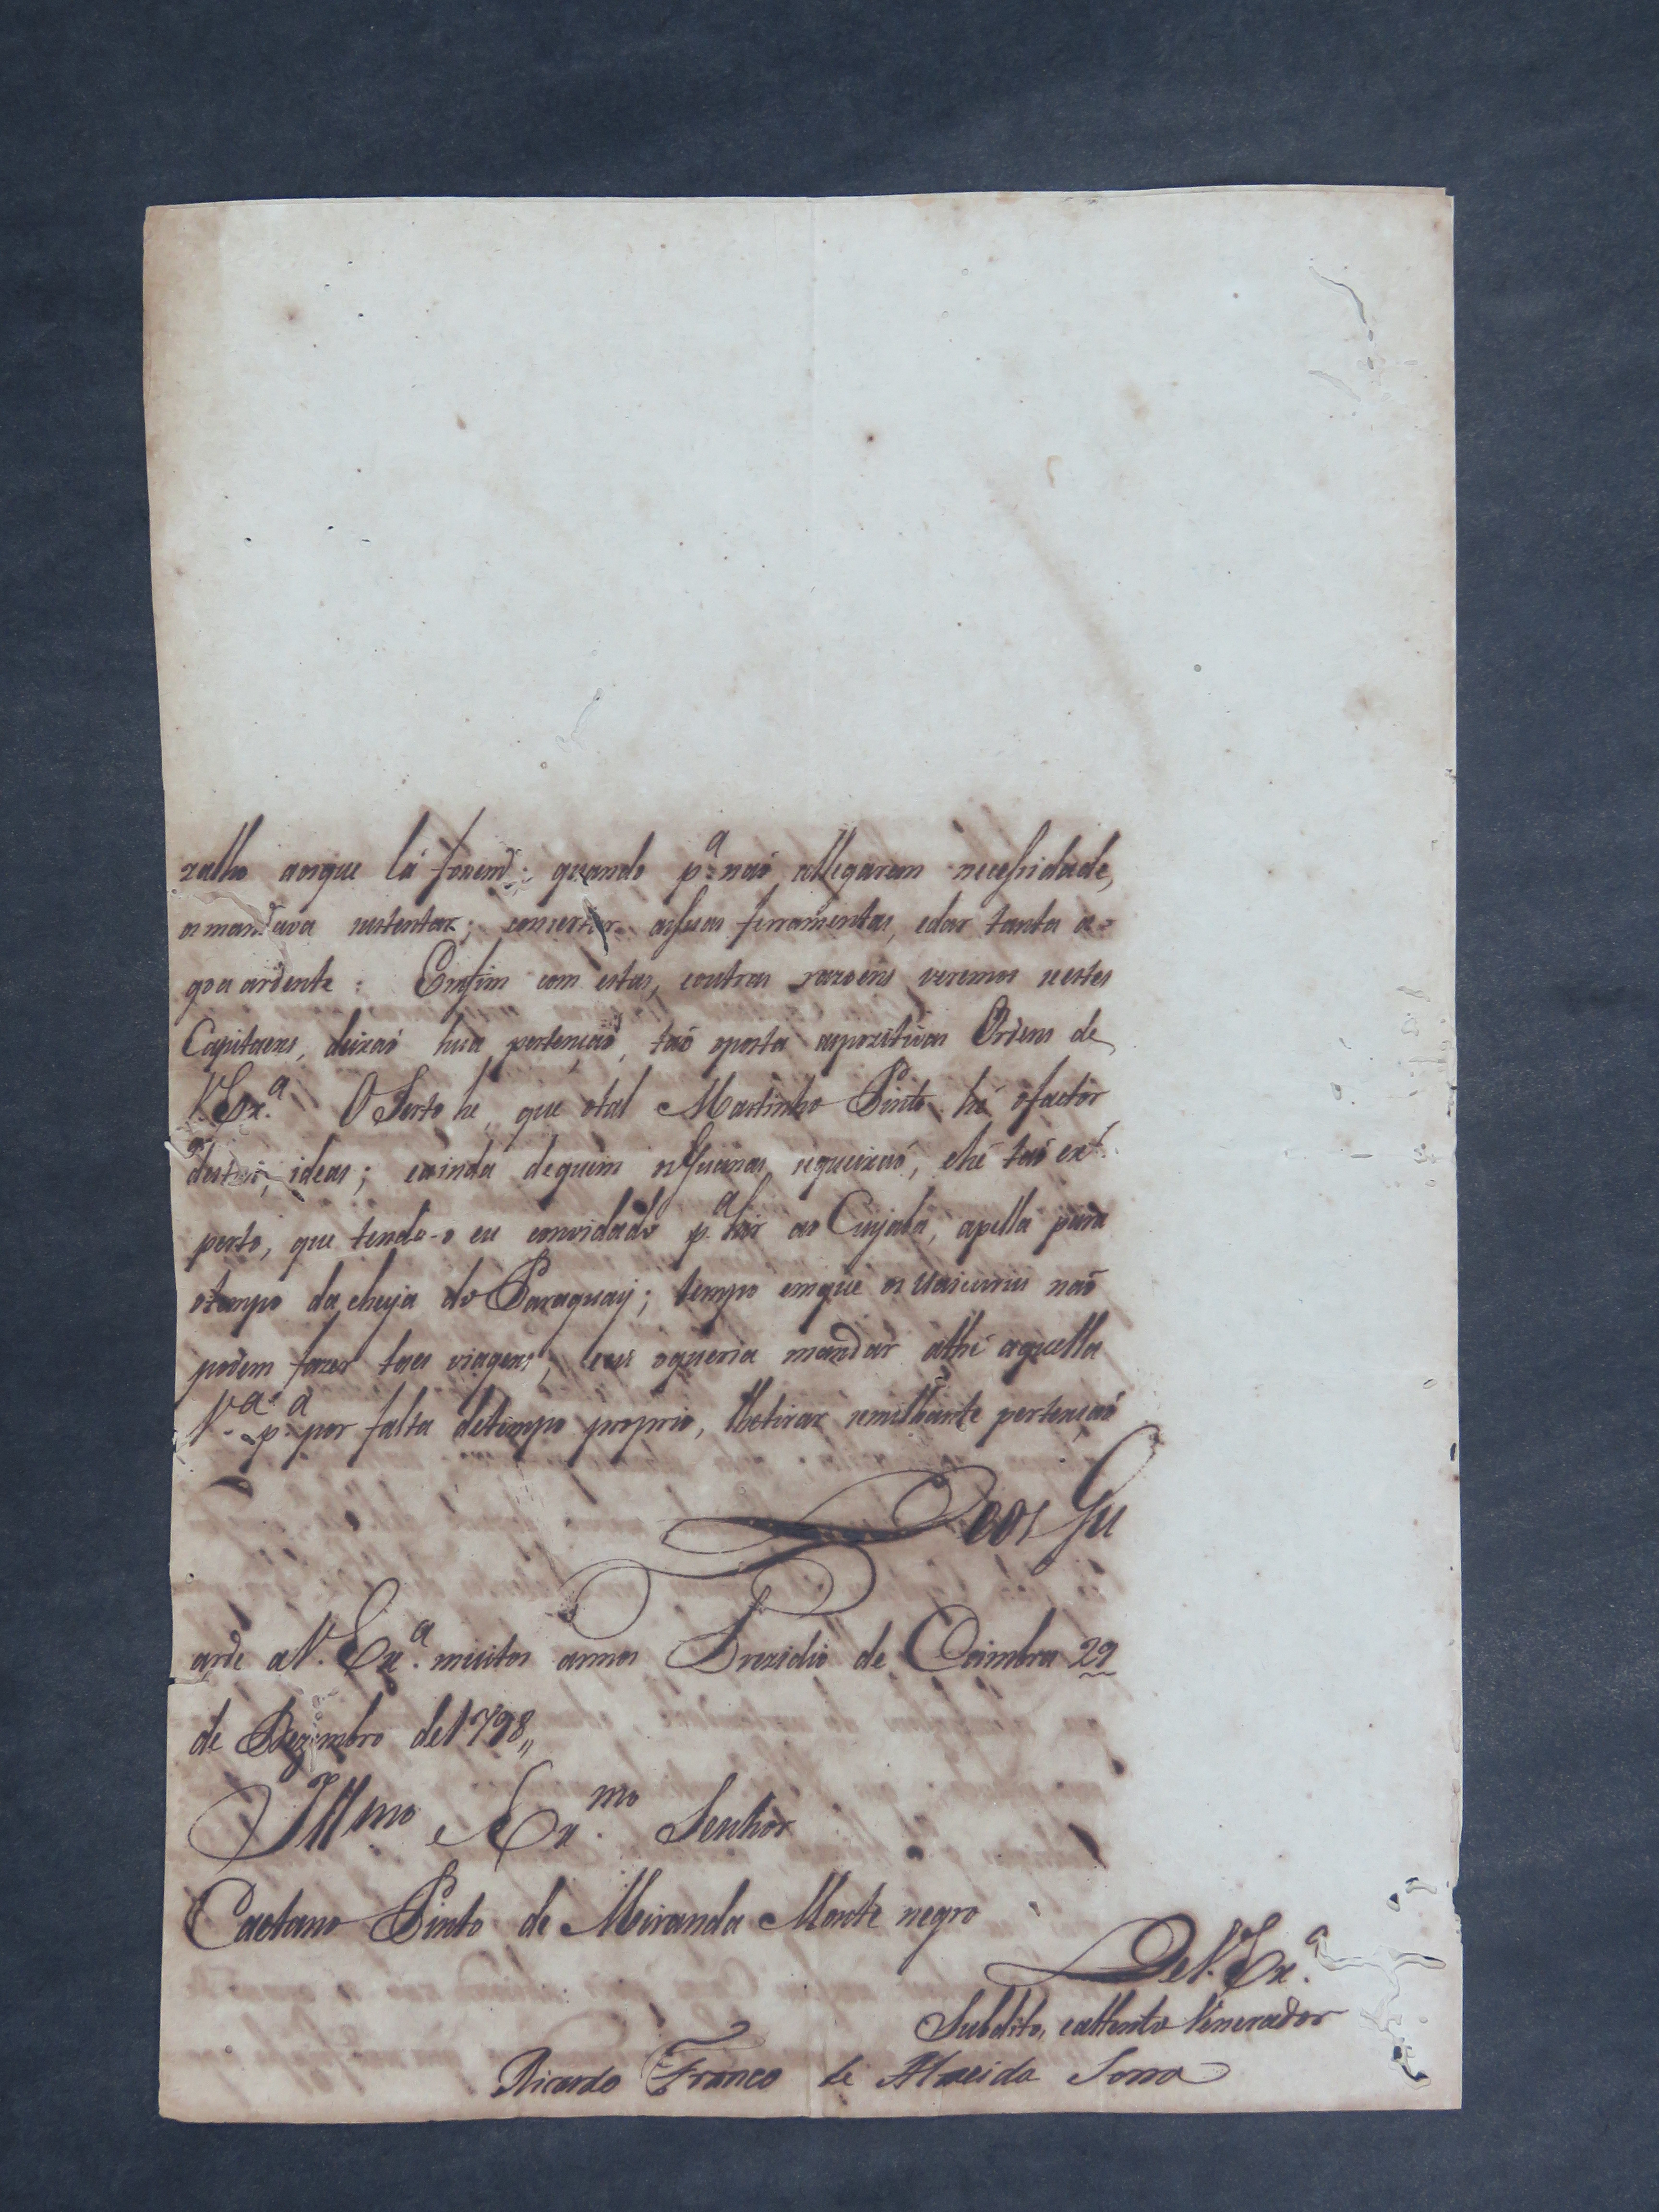 zalho aosque lá forem; quando p.ª naõ allegarem necessidade,
os mandava sustentar; concertar assuas ferramentas, edar tanta a=
goa ardente: Emfim com estas, eoutras razoens veremos sestes
Capitaens, deixaõ hua pertençaõ, taõ oposta aspozitivas Ordens de
V. Ex.ª O Serto he, que otal Martinho Pinto hé ofactor
destas ideas; eainda dequem os Guanas sequeixaõ, ehé taõ ex=
perto, que tendo-o eu convidado p.ª hir ao Cuyabá, apella para
otempo da cheya do Paraguay; tempo emque os Uaicurus naõ
podem fazer taes viagens; eeu oqueria mandar athé aquella
V.ª p.ª por falta detempo proprio, lhetirar semilhante pertençaõ
Deos Gu
arde aV. Ex.ª muitos annos Prezidio de Coimbra 29
de Dezembro de1798,,
Illmo e Ex.mo Senhor
Caetano Pinto de Miranda Monte negro
DeV. Ex.ª
Subdito, eattento Venerador
Ricardo Franco de Almeida Serra